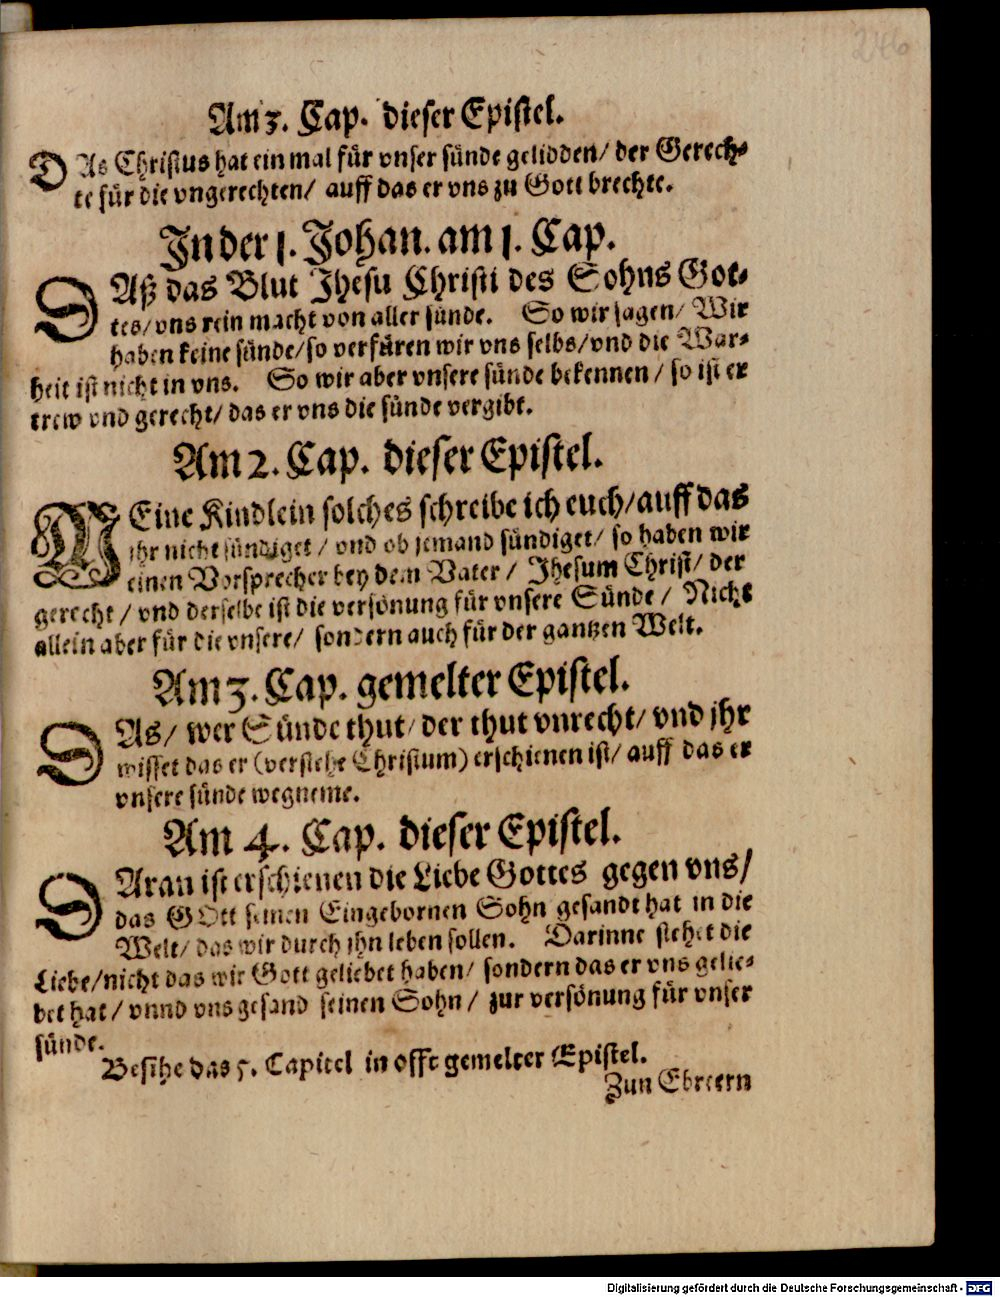 246
Am 3. Cap. dieser Epistel.
DAs Christus hat ein mal für vnser sünde gelidden/ der Gerech-
te für die vngerechten/ auff das er vns zu Gott brechte.
In der 1. Johan. am 1. Cap.
DAß das Blut Jhesu Christi des Sohns Got-
tes/ vns rein macht von aller sünde. So wir sagen/ Wir
haben keine sünde/ so verfüren wir vns selbs/ vnd die War-
heit ist nicht in vns. So wir aber vnsere sünde bekennen/ so ist er
trew vnd gerecht/ das er vns die sünde vergibt.
Am 2. Cap. dieser Epistel.
MEine Kindlein solches schreibe ich euch/ auff das
jhr nicht sündiget/ vnd ob jemand sündiget/ so haben wir
einen Vorsprecher bey dem Vater/ Jhesum Christ/ der
gerecht/ vnd derselbe ist die versönung für vnsere Sünde/ Nicht
allein aber für die vnsere/ sondern auch für der gantzen Welt.
Am 3. Cap. gemelter Epistel.
DAs/ wer Sünde thut/ der thut vnrecht/ vnd jhr
wisset das er (verstehe Christum) erschienen ist/ auff das er
vnsere sünde wegneme.
Am 4. Cap. dieser Epistel.
DAran ist erschienen die Liebe Gottes gegen vns/
das GOtt seinen Eingebornen Sohn gesandt hat in die
Welt/ das wir durch jhn leben sollen. Darinne stehet die
Liebe/ nicht das wir Gott geliebet haben/ sondern das er vns gelie-
bet hat/ vnnd vns gesand seinen Sohn/ zur versönung für vnser
sünde.
Besihe das 5. Capitel in offt gemelter Epistel.
Zun Ebreern
Digitalisierung gefördert durch die Deutsche Forschungsgemeinschaft - DFG